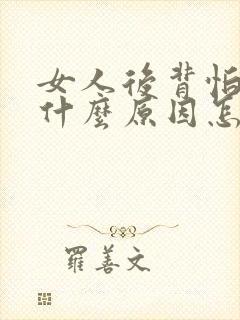 女人後背怕
什麼原因怎
羅善文